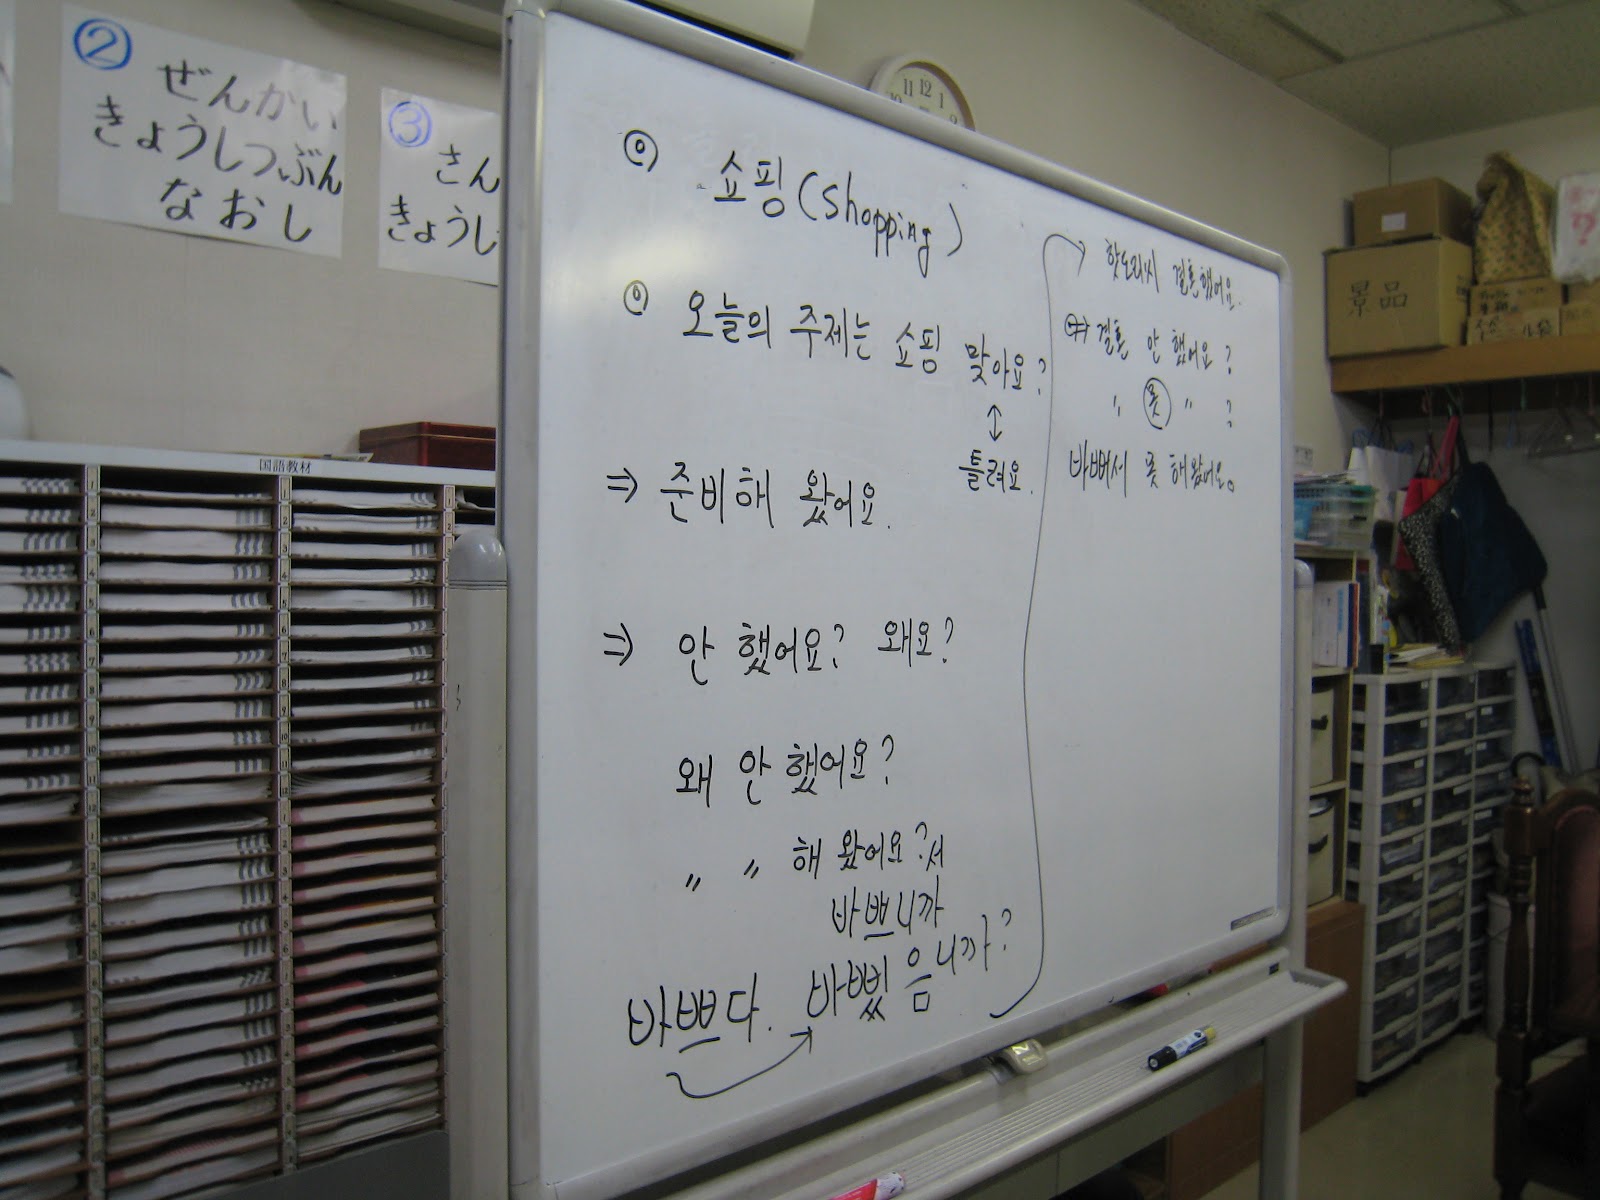 ② ぜんかい
きょうしつぶん
なおし
③ さん
きょうし
国語教材
11 12 1
景品
쇼핑(shopping)
오늘의 주제는 쇼핑 맞아요?
↕
틀려요.
⇒ 준비해 왔어요.
⇒ 안 했어요? 왜요?
왜 안 했어요?
〃 〃 해 왔어요?서
바쁘니까
바쁘다. 바빴음니까?
핫토리씨 결혼했어요.
결혼 안 했어요?
〃 못 〃 ?
바빠서 못 해 왔어요。